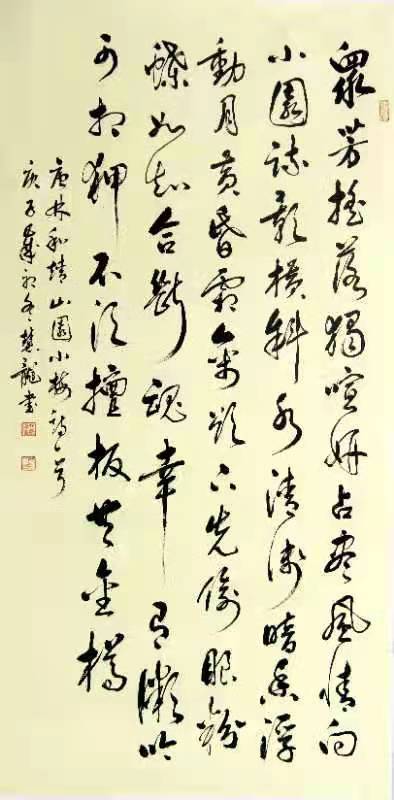 眾芳搖落獨喧妍占盡風情向
小園疏影橫斜水清淺暗香浮
動月黃昏霜禽欲下先偷眼粉
蝶如知合斷魂幸有微吟
可相狎不須檀板共金樽
林和靖山園小梅詩一首
庚子歲初冬龍書